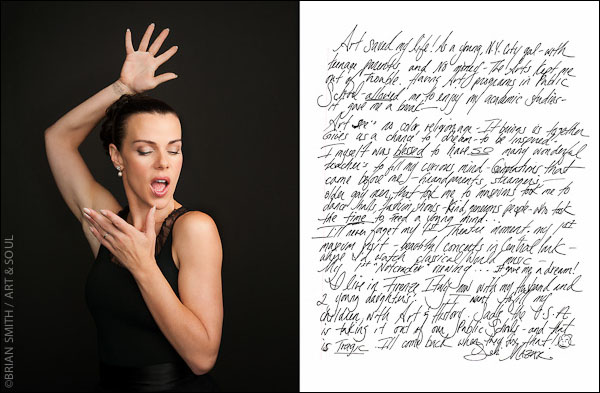 ©BRIAN SMITH / ART & SOUL
Art saved my life! As a young, N.Y. City gal - with
teenage parents, and no money - The Arts kept me
out of trouble. Having Art programs in Public
School allowed me to enjoy my academic studies -
it gave me a
Art no color, religion, age - It brings us together
Gives us a chance to dream - to be inspired -
I myself was blessed to have so many wonderful
teachers to fill my curious mind - Generations that
came before me! Grandparents, strangers, -
older gay men, that took me to museums took me to
dance halls, fashion shows. Kind, generous people - who took
the time to feed a young mind...
I'll never forget my 1st Theatre moment. my 1st
museum visit - beautiful concerts in Central Park -
where I'd watch classical music -
My 1st "Nutcracker" evening ... it gave me a dream!
I live in Italy now with my husband and
2 young daughters. I want to fill my
children with Art & History. Sadly the U.S.A.
is taking it out of our Public Schools - and that
is Tragic. I'll come back when they fix that!